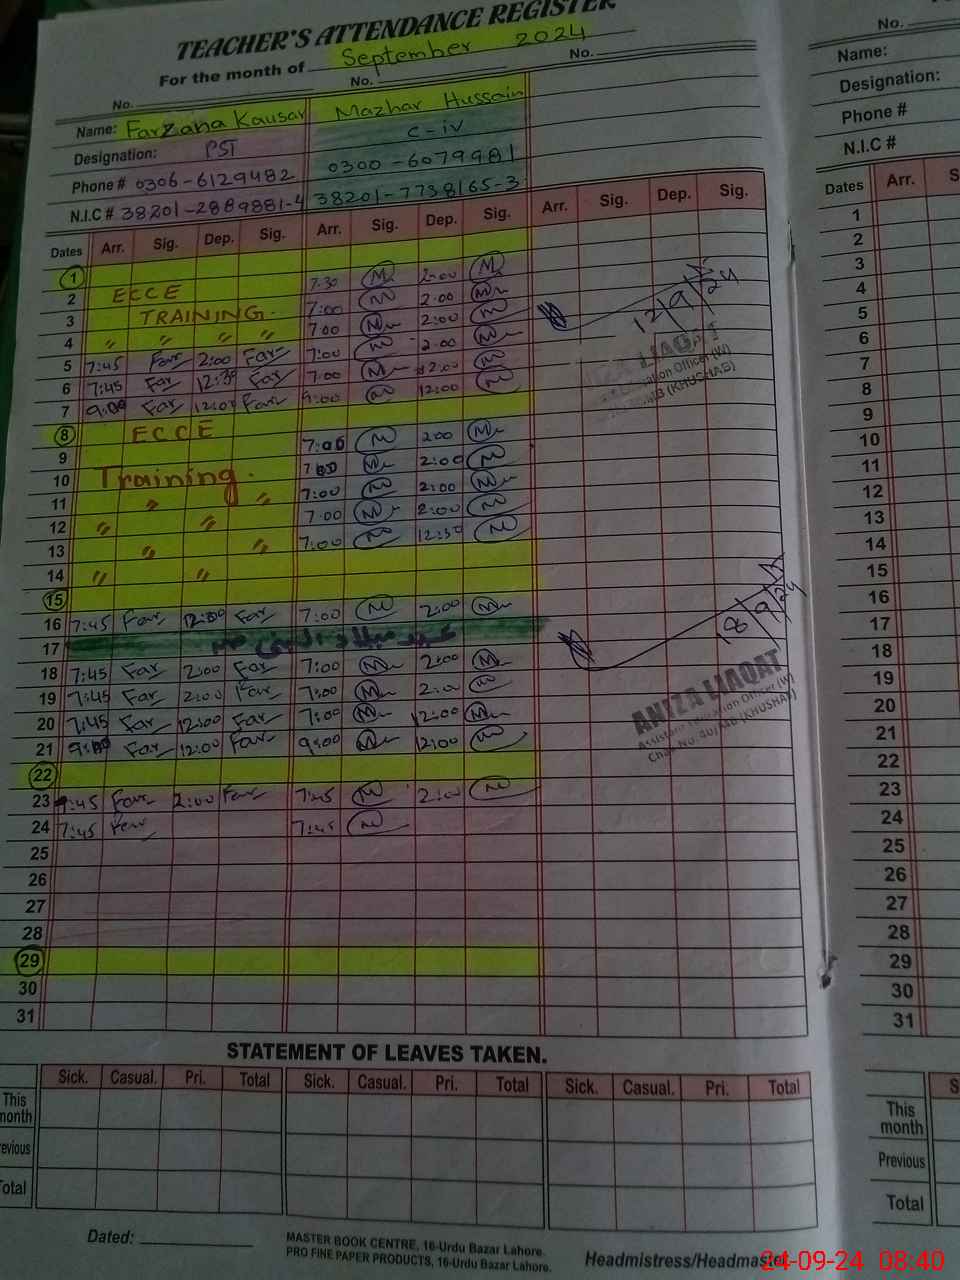 TEACHER'S ATTENDANCE REGISTER
For the month of September 2024
No. No. No.
Name: Farzana Kausar Mazhar Hussain
Designation: PST C-iv
Phone # 0306-6129482 0300-6079981
N.I.C # 38201-2889881-4 38201-7738165-3
Dates Arr. Sig. Dep. Sig. Arr. Sig. Dep. Sig. Arr. Sig. Dep. Sig.
1
2 ECCE 7:30 2:00
3 TRAINING. 7:00 2:00
4 " " " " 7:00 2:00
5 7:45 Far 2:00 Far 7:00 2:00
6 7:45 Far 12:30 Far 7:00 12:00
7 9:00 Far 12:00 Far 9:00 12:00
12/9/24
8 ECCE
9 7:00 2:00
10 Training. 7:00 2:00
11 " " 7:00 2:00
12 " " 7:00 2:00
13 " " 7:00 12:30
14 " "
15
16 7:45 Far 12:00 Far 7:00 2:00
17 عید میلاد النبی
18 7:45 Far 2:00 Far 7:00 2:00
19 7:45 Far 2:00 Far 7:00 2:00
20 7:45 Far 12:00 Far 7:00 12:00
21 9:00 Far 12:00 Far 9:00 12:00
18/9/24
ANIZA LIAQAT
Assistant Education Officer (W)
(KHUSHAB)
22
23 7:45 Far 2:00 Far 7:45 2:00
24 7:45 Far 7:45
25
26
27
28
29
30
31
STATEMENT OF LEAVES TAKEN.
Sick. Casual. Pri. Total Sick. Casual. Pri. Total Sick. Casual. Pri. Total
This month
Previous
Total
Dated:
MASTER BOOK CENTRE, 16-Urdu Bazar Lahore.
PRO FINE PAPER PRODUCTS, 16-Urdu Bazar Lahore.
Headmistress/Headmaster
No.
Name:
Designation:
Phone #
N.I.C #
Dates Arr.
1
2
3
4
5
6
7
8
9
10
11
12
13
14
15
16
17
18
19
20
21
22
23
24
25
26
27
28
29
30
31
This month
Previous
Total
24-09-24 08:40